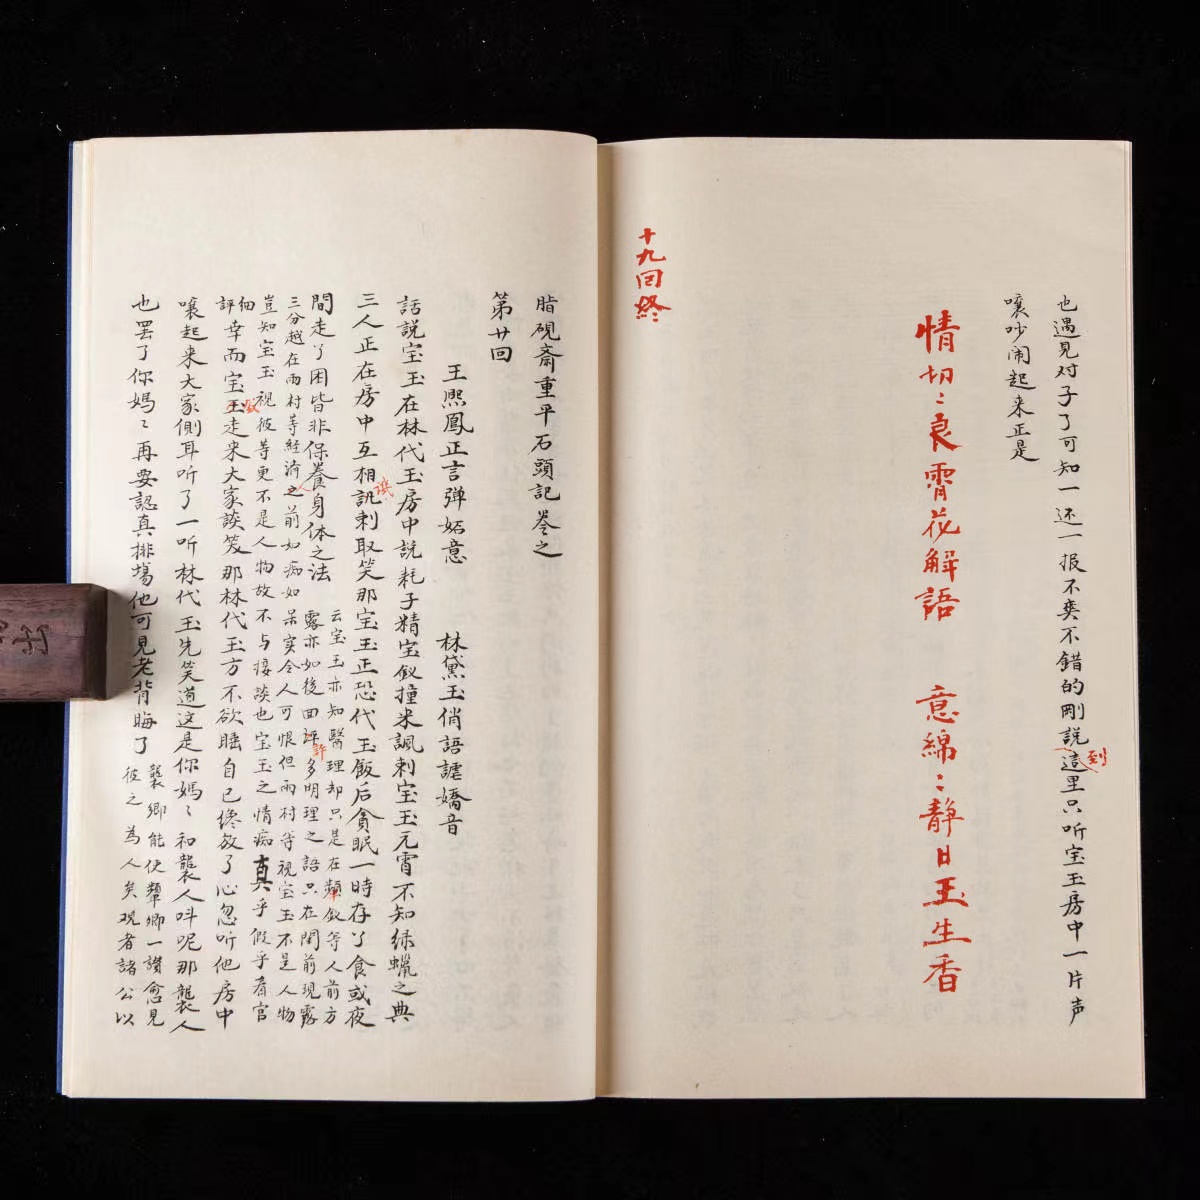 也遇见对子了可知一还一报不爽不错的刚說這里只听宝玉房中一片声
到
嚷吵闹起来正是
情切〻良宵花解語　意綿〻靜日玉生香
十九回終
脂硯斋重平石頭記卷之
第廿回
王熙鳳正言弹妬意　林黛玉俏語謔嬌音
話説宝玉在林代玉房中説耗子精宝釵撞来諷刺宝玉元宵不知绿蠟之典
三人正在房中互相訊刺取笑那宝玉正恐代玉飯后貪眠一時存了食或夜
間走了困皆非保養身体之法
云宝玉亦知醫理却只是在顰釵等人前方
露亦如後回許多明理之語只在閨前現露
三分越在雨村等经濟之前如痴如呆实令人可恨但雨村等視宝玉不是人物
人
豈知宝玉視彼等更不是人物故不与接談也宝玉之情痴真乎假乎看官
細評
幸而宝玉走来大家談笑那林代玉方不欲睡自己纔放了心忽听他房中
釵
嚷起来大家側耳听了一听林代玉先笑道这是你媽〻和襲人呌呢那襲人
也罢了你媽〻再要認真排場他可見老背晦了
襲卿能使顰卿一讃愈見
彼之為人矣观者諸公以